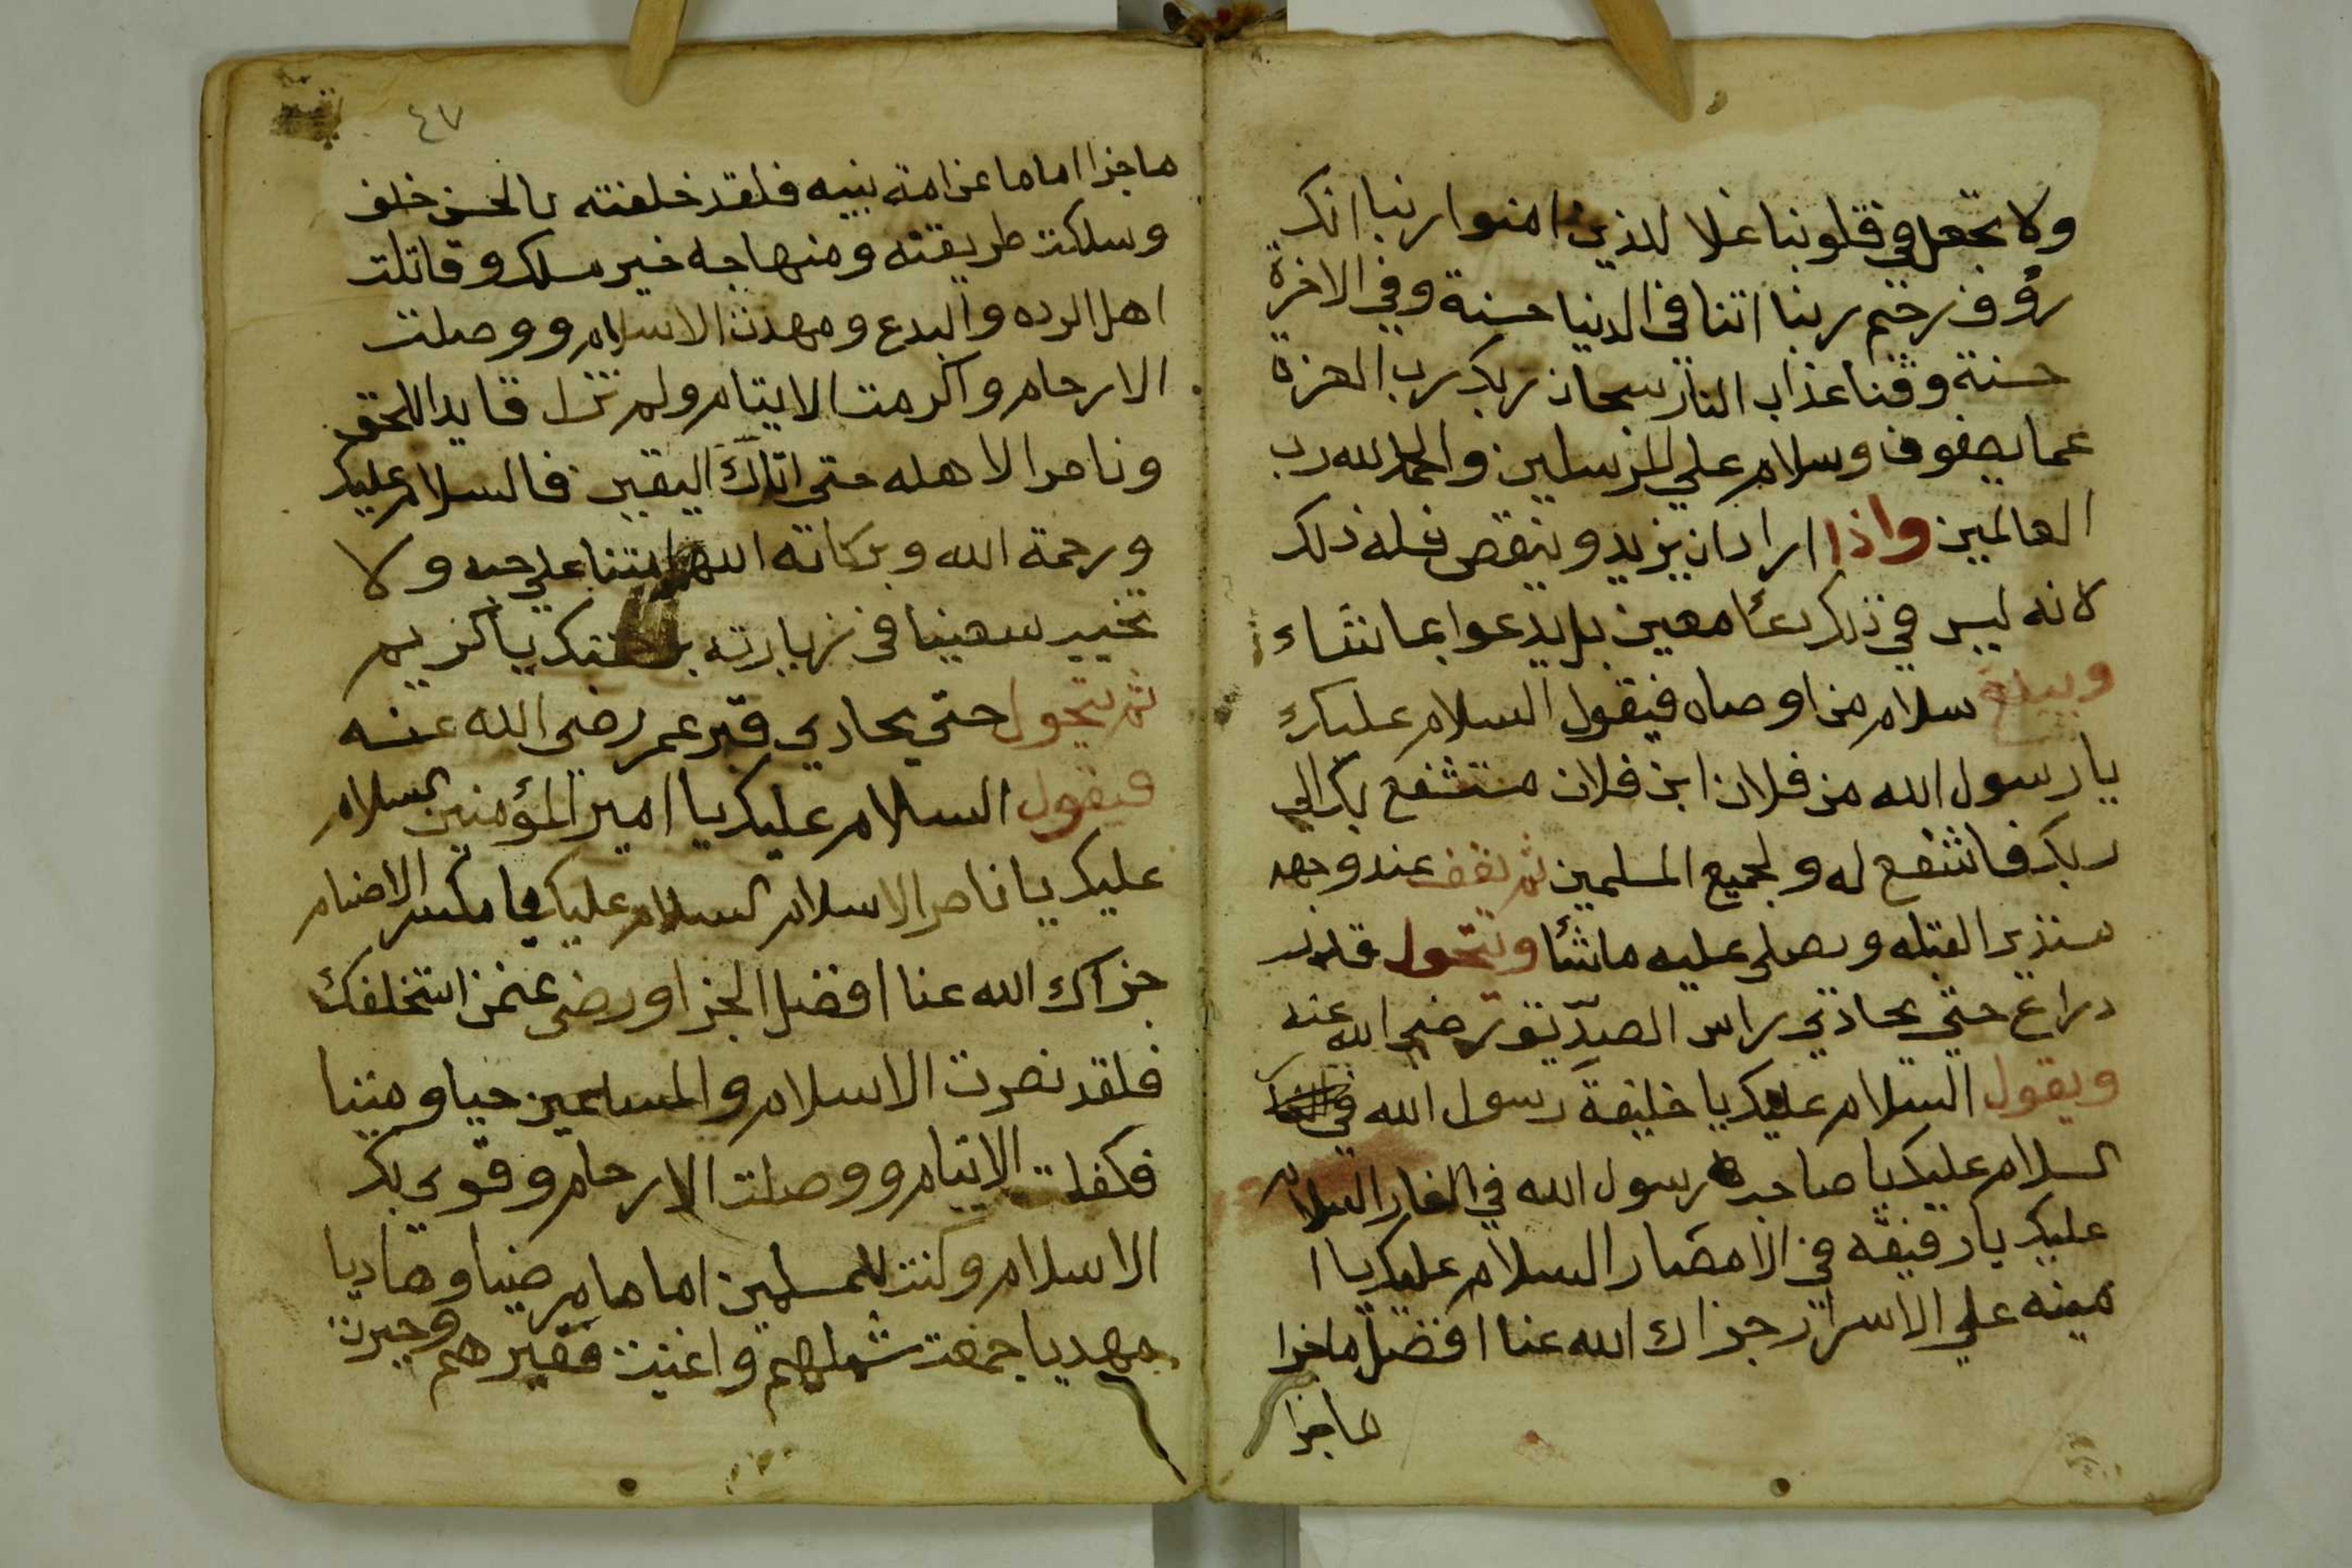 ولا تجعل في قلوبنا غلا للذين امنوا ربنا انك
رؤوف رحيم ربنا اتنا في الدنيا حسنة وفي الاخرة
حسنة وقنا عذاب النار سبحان ربك رب العزة
عما يصفون وسلام علي المرسلين والحمد لله رب
العالمين واذا اراد ان يزيد وينقص فله ذلك
لانه ليس في ذلك دعًا معين بل يدعوا بما شاء
ويبلغ سلام من اوصاه فيقول السلام عليك
يا رسول الله من فلان ابن فلان مستشفع بك الي
ربك فاشفع له ولجميع المسلمين ثم يقف عند وجهه
مستدبر القبله ويصلي عليه ماشًا ويتحول قدر
دراع حتي يحادي راس الصدّيق رضي الله عنه
ويقول السلام عليك يا خليفة رسول الله في
السلام عليك يا صاحب رسول الله في الغار السلام
عليك يا رفيقه في الامصار السلام عليك يا ا
مينه علي الاسرار جزاك الله عنا افضل ما جزا
ما جزا
٤٧
ما جزا اماما عن امة نبيه فلقد خلفته بالحسن خلف
وسلكت طريقته ومنهاجه خير مسلك وقاتلت
اهل الرده والبدع ومهدت الاسلام ووصلت
الارحام واكرمت الايتام ولم تزل قايدا للحق
وناصرا لاهله حتى اتاك اليقين فالسلام عليك
ورحمة الله وبركاته اللهم امتنا علي حبه ولا
تخيب سعينا في زيارته برحمتك يا كريم
ثم يتحول حتي يحادي قبر عمر رضي الله عنه
فيقول السلام عليك يا امير المؤمنين السلام
عليك يا ناصر الاسلام السلام عليك يا مكسر الاصنام
جزاك الله عنا افضل الجزا ورضى عنمن استخلفك
فلقد نصرت الاسلام والمسلمين حيا وميتا
فكفلت الايتام ووصلت الارحام وقوي بك
الاسلام وكنت للمسلمين اماما مرضيا وهاديا
مهديا جمعت شملهم واغنيت فقيرهم وجبرت